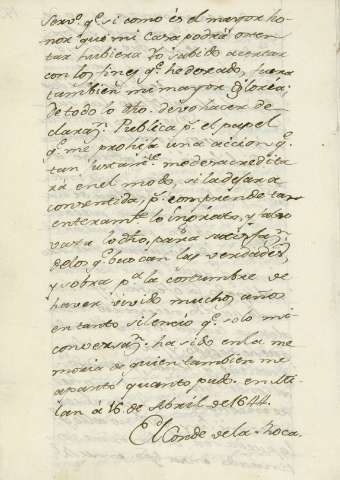 serv.º q.e si como és el mayor ho
nor que mi Casa podrá osten
tar hubiera Yo sabido acertar
con los fines q.e he deseado, fuera
tambien mi mayor Gloria;
de todo lo dho. devo hacer de
claraz.n Publica p.r el papel
q.e me prohija una accion q.e
tan me desacredita
ra en el modo, si la dejara
consentida, p.r comprende tan
enteram.te lo ingrato, y
lo dho, para satisfaz.n
de los q.e buscan las verdades,
y sobra p.a la costumbre de
haver vivido muchos años
en tanto silencio q.e solo mi
conversaz.n ha sido en la me
moria de quien tambien me
apartó quanto pudo. en Mi
lan á 16. de Abril de 1644.
El Conde de la Roca.